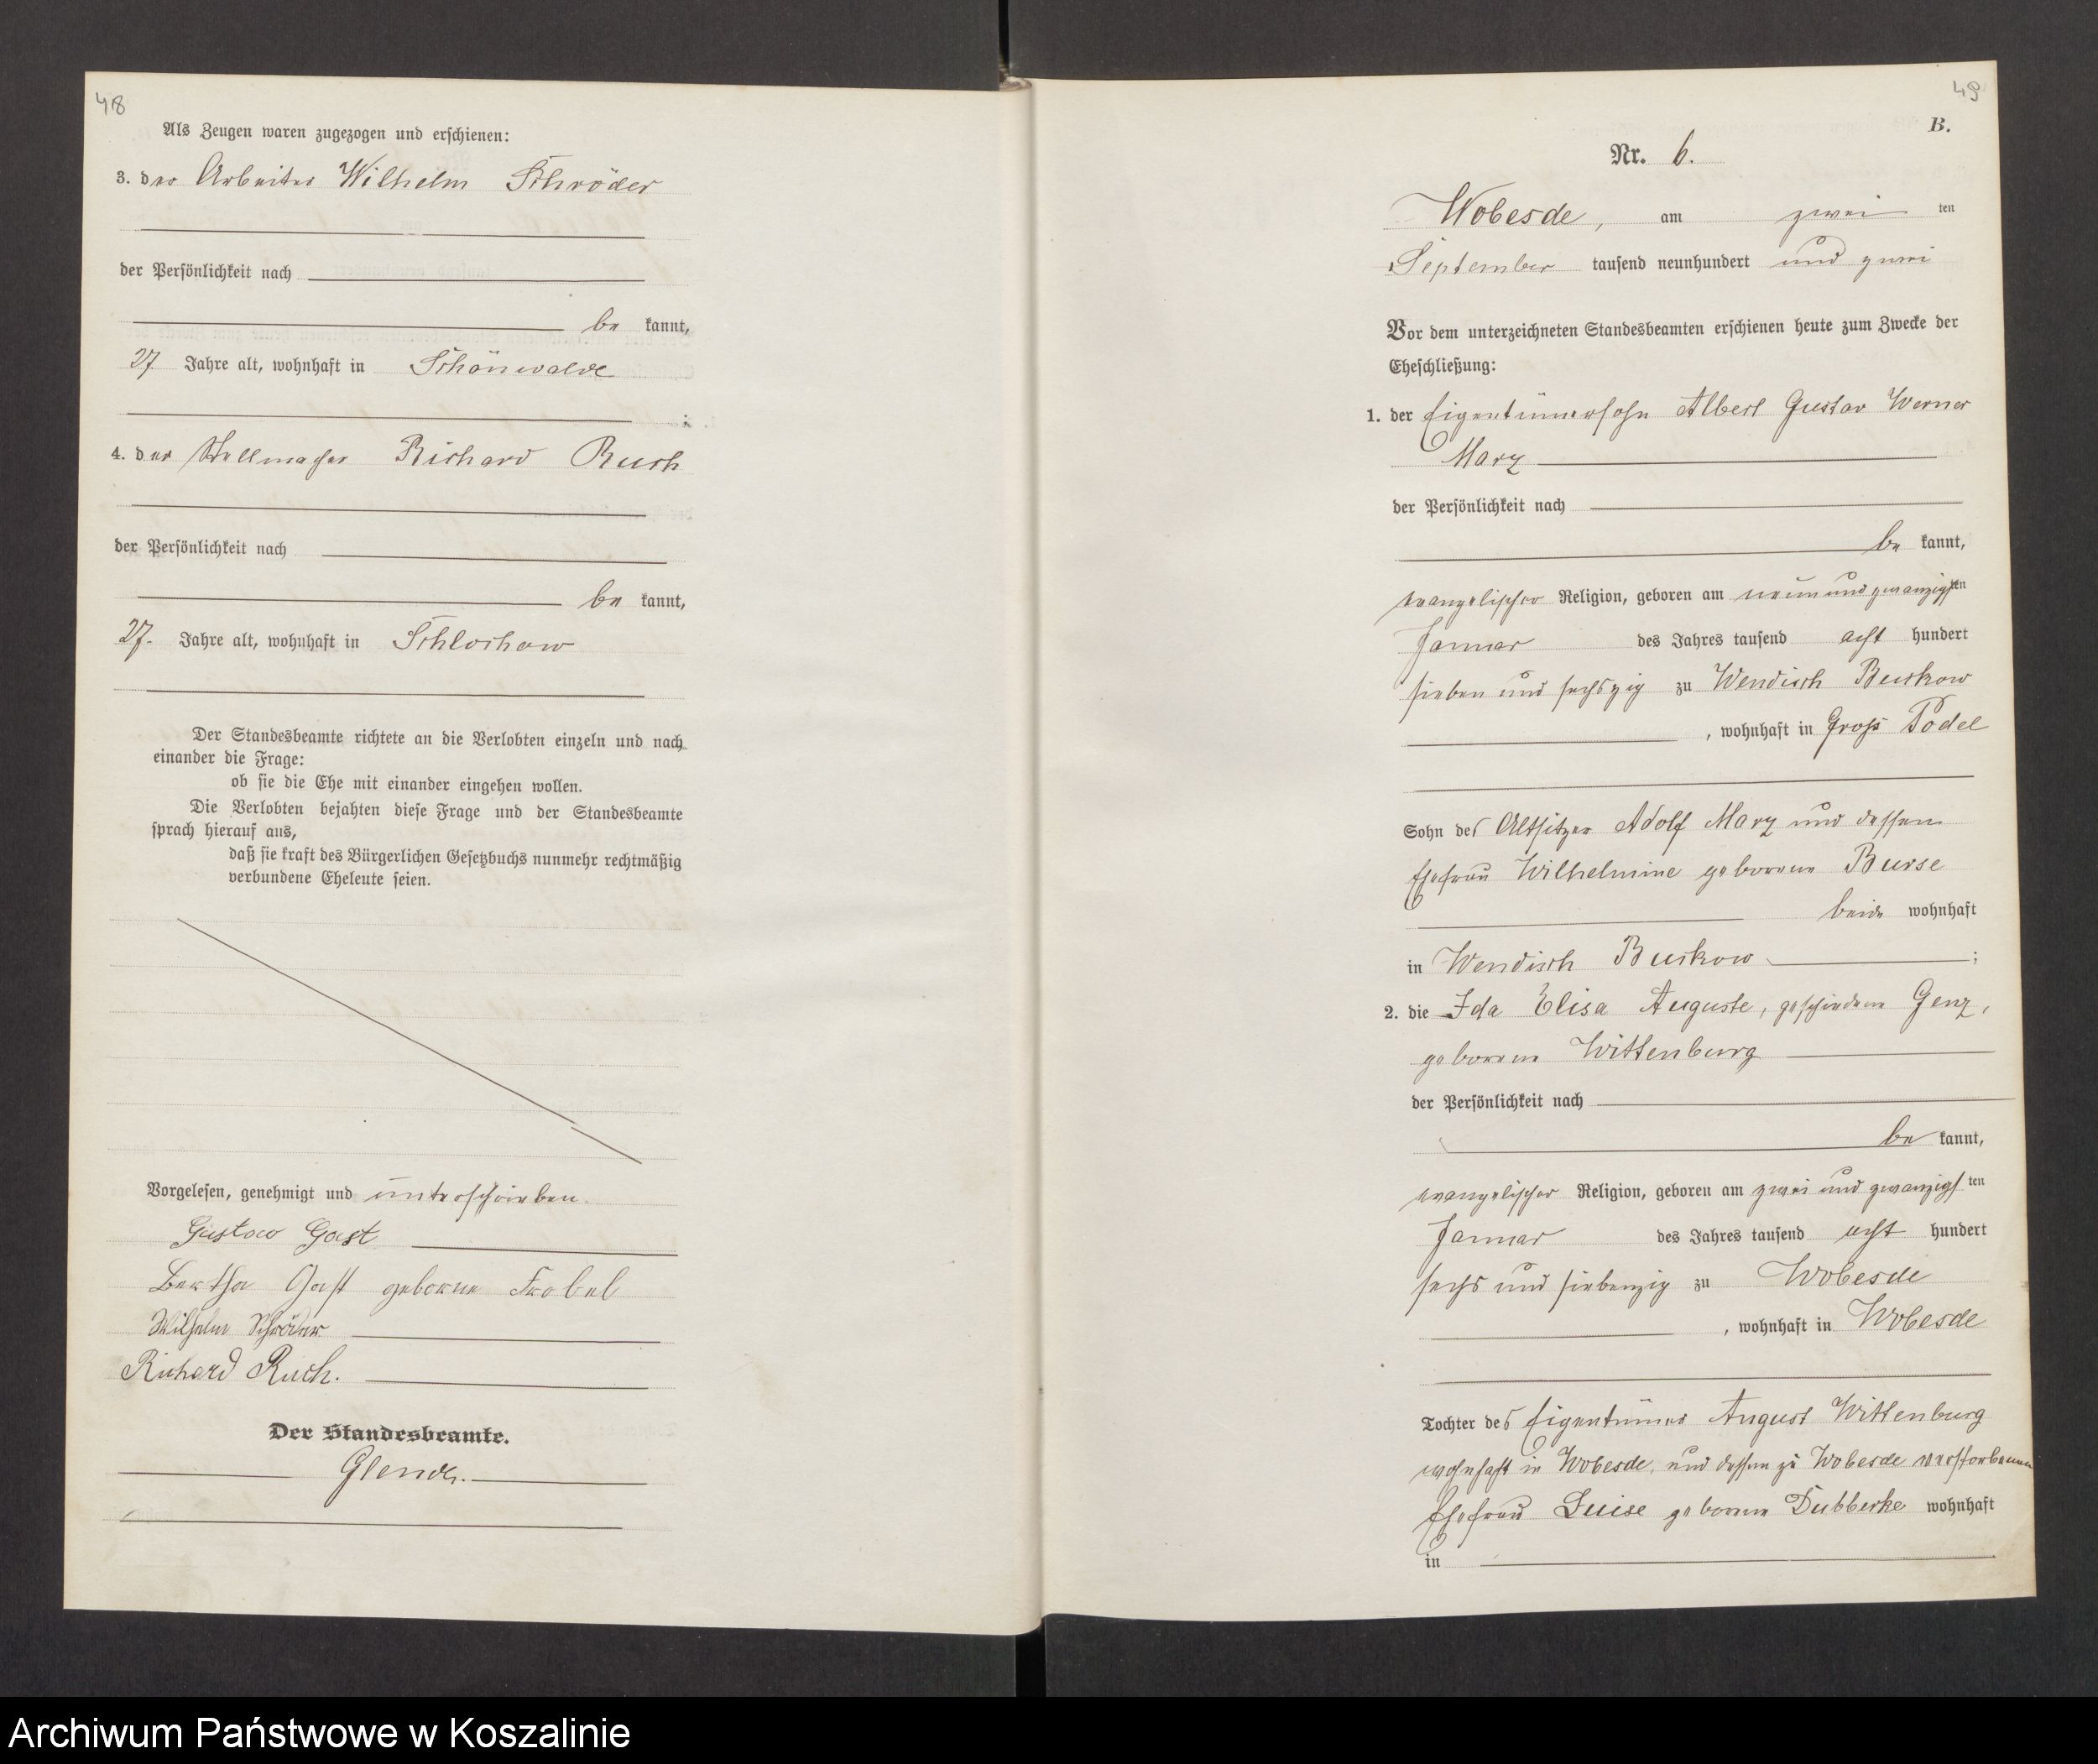 48
Als Zeugen waren zugezogen und erschienen:
3. der Arbeiter Wilhelm Schröder
der Persönlichkeit nach
be kannt,
27 Jahre alt, wohnhaft in Schönwalde
;
4. der Stellmacher Richard Ruch
der Persönlichkeit nach
be kannt,
27. Jahre alt, wohnhaft in Schlochow
Der Standesbeamte richtete an die Verlobten einzeln und nach
einander die Frage:
ob sie die Ehe mit einander eingehen wollen.
Die Verlobten bejahten diese Frage und der Standesbeamte
sprach hierauf aus,
daß sie kraft des Bürgerlichen Gesetzbuchs nunmehr rechtmäßig
verbundene Eheleute seien.
Vorgelesen, genehmigt und unterschrieben.
Gustav Gast
Bertha Gast geborne Frobel
Wilhelm Schröder
Richard Ruch.
Der Standesbeamte.
49
B.
Nr. 6.
Wobesde, am zwei ten
September tausend neunhundert und zwei
Vor dem unterzeichneten Standesbeamten erschienen heute zum Zwecke der
Eheschließung:
1. der Eigentümersohn Albert Gustav Werner
Marz
der Persönlichkeit nach
be kannt,
evangelischer Religion, geboren am neunundzwanzigsten
Januar des Jahres tausend acht hundert
sieben und sechszig zu Wendisch Buckow
, wohnhaft in Groß Podel
Sohn des Altsitzer Adolf Marz und dessen
Ehefrau Wilhelmine geborene Burse
beide wohnhaft
in Wendisch Buckow ;
2. die Ida Elisa Auguste, geschiedene Genz,
geborene Wittenburg
der Persönlichkeit nach
be kannt,
evangelischer Religion, geboren am zwei und zwanzigsten
Januar des Jahres tausend acht hundert
sechs und siebenzig zu Wobesde
, wohnhaft in Wobesde
Tochter des Eigentümer August Wittenburg
wohnhaft in Wobesde, und dessen zu Wobesde verstorbenen
Ehefrau Luise geborene Dubberke wohnhaft
in
Archiwum Państwowe w Koszalinie